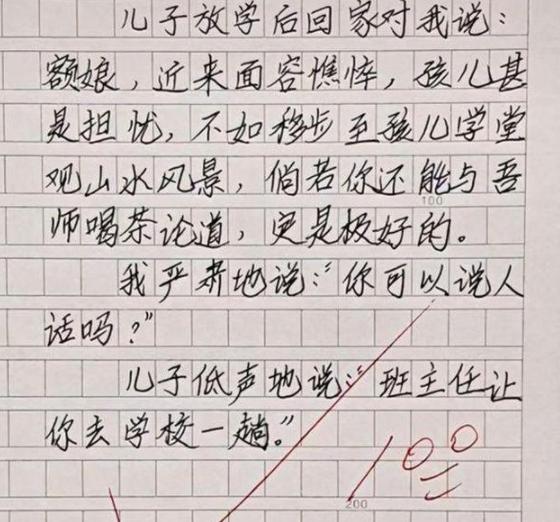 儿子放学后回家对我说：
额娘，近来面容憔悴，孩儿甚
是担忧，不如移步至孩儿学堂
观山水风景，倘若你还能与吾
100
师喝茶论道，定是极好的。
我严肃地说：“你可以说人
话吗？”
儿子低声地说：“班主任让
你去学校一趟。”
100
200